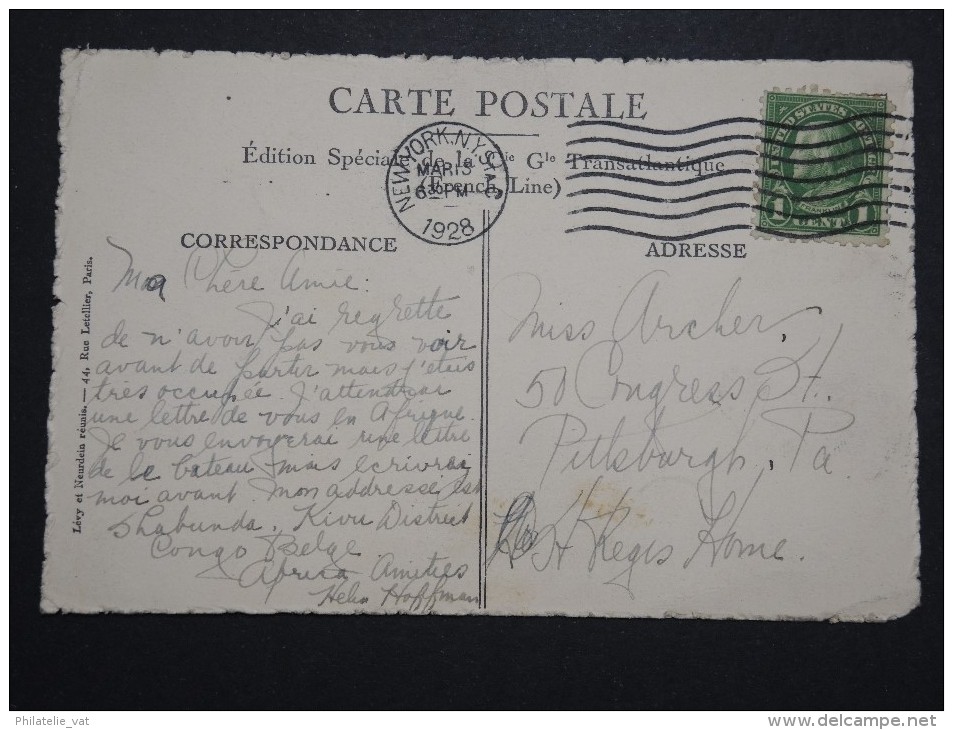 CARTE POSTALE
Édition Spéciale de la Cie Gle Transatlantique
(French Line)
NEW YORK, N.Y. STA.
MAR 13
630 PM
1928
UNITED STATES POSTAGE
FRANKLIN
1 CENT 1
CORRESPONDANCE
ADRESSE
Lévy et Neurdein réunis. — 44, Rue Letellier, Paris.
Ma Chère Amie:
J'ai regretté
de n'avoir pas vous voir
avant de partir mais j'étais
très occupée. J'attendrai
une lettre de vous en Afrique.
Je vous envoyerai une lettre
de le bateau mais ecrivez
moi avant. Mon addresse est
Shabunda, Kivu District
Congo Belge
Africa Amities
Helen Hoffman
Miss Archer,
50 Congress St.
Pittsburgh, Pa
St Regis Home.
Philatelie_vat
www.delcampe.net